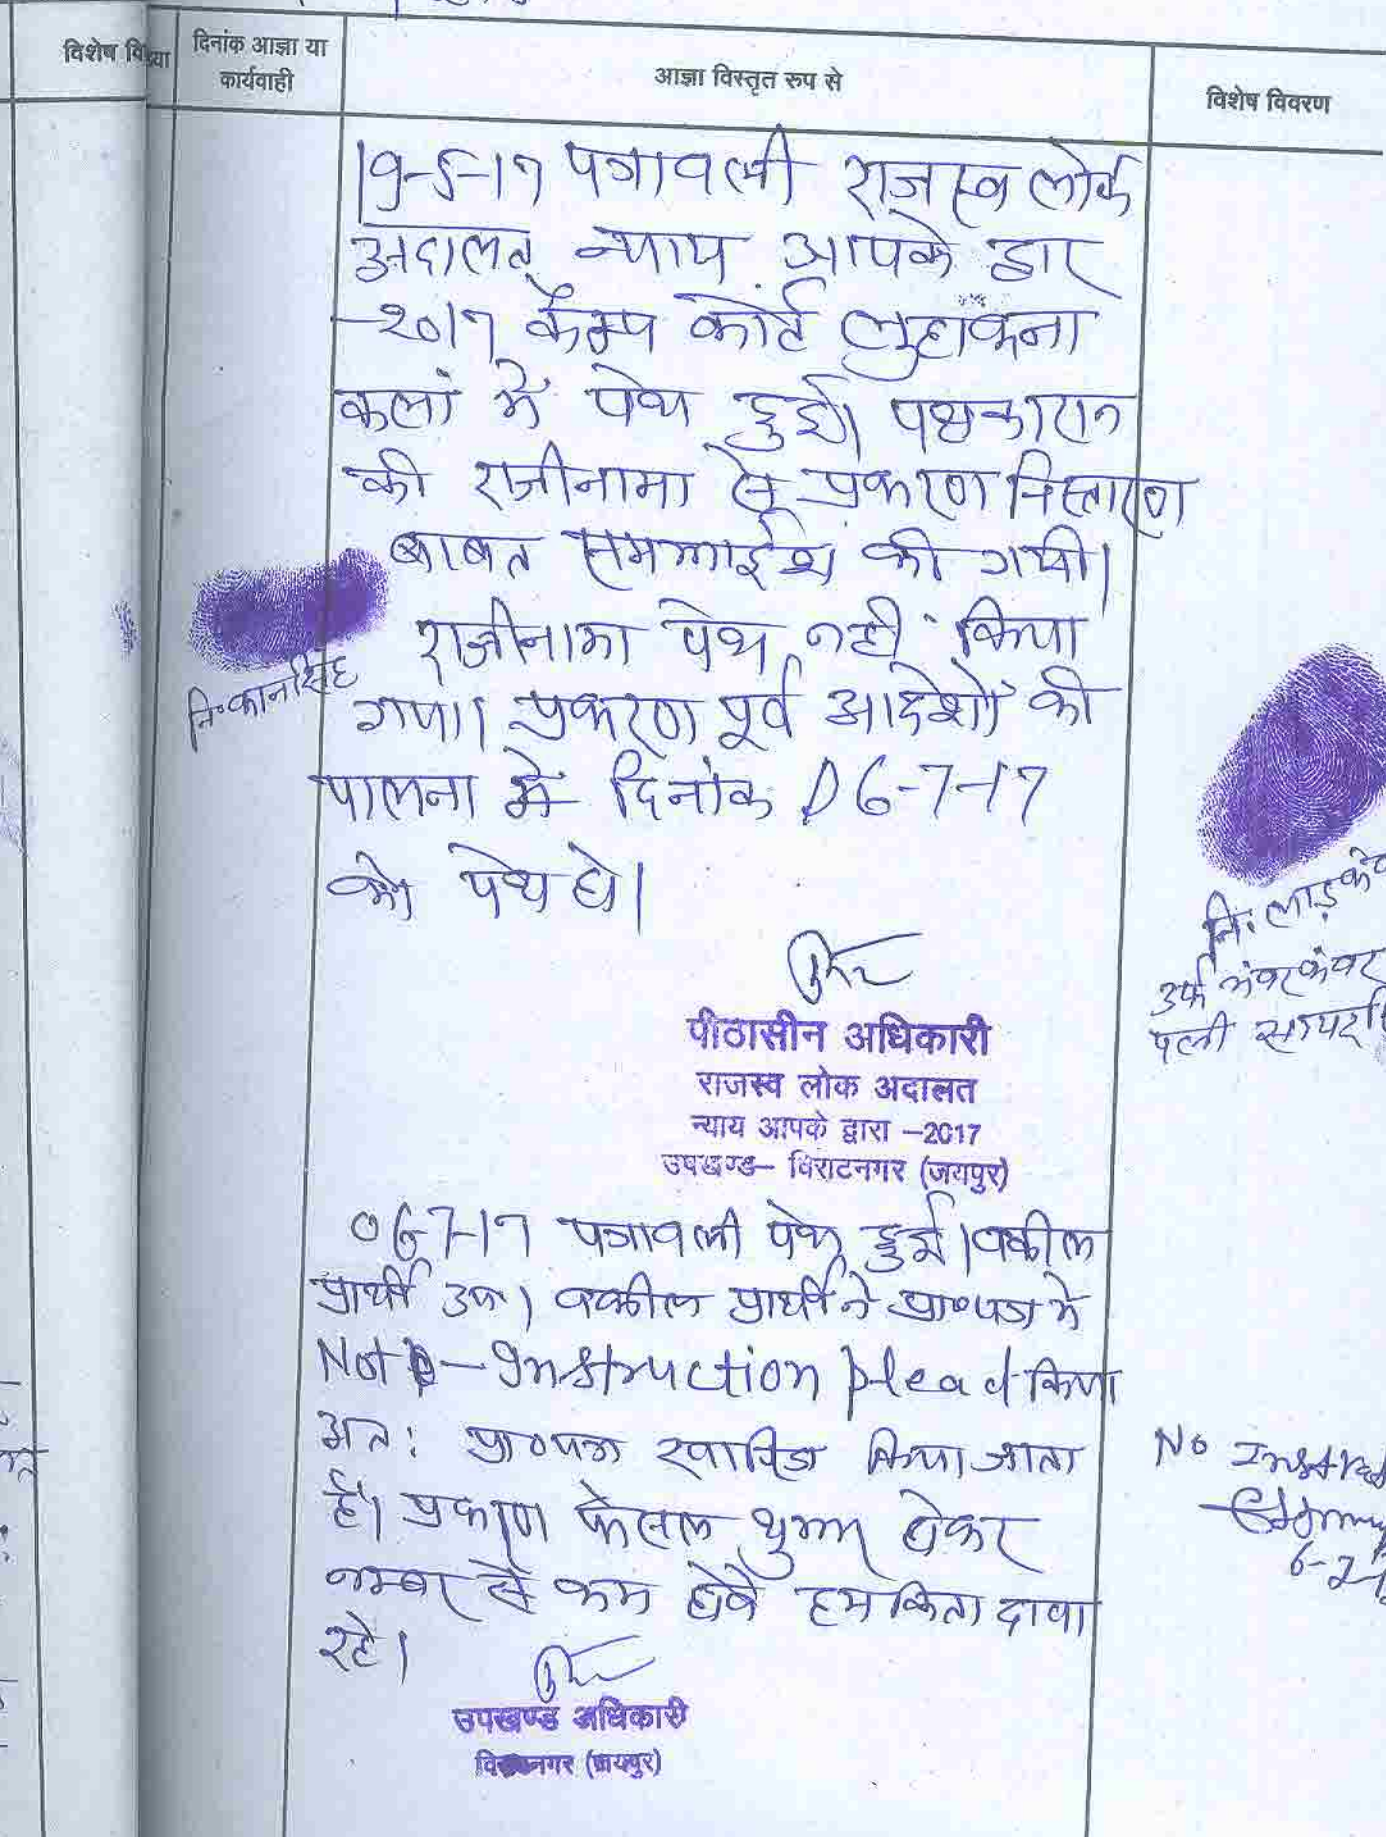 विशेष वि
दिनांक आज्ञा या
कार्यवाही
आज्ञा विस्तृत रूप से
विशेष विवरण
19-5-17 पत्रावली राजस्व लोक
अदालत न्याय आपके द्वार
-2017 कैम्प कोर्ट लुहाकना
कलां में पेश हुई। पक्षकारान
को राजीनामा से प्रकरण निस्तारण
बाबत समझाईश की गयी।
राजीनामा पेश नही किया
गया। प्रकरण पूर्व आदेशों की
पालना में दिनांक 06-7-17
को पेश हो।
नि॰ कानसिंह
नि॰ लाड़
उर्फ भंवर कंवर
पत्नी
पीठासीन अधिकारी
राजस्व लोक अदालत
न्याय आपके द्वारा -2017
उपखण्ड- विराटनगर (जयपुर)
06-7-17 पत्रावली पेश हुई। वकील
प्रार्थी उप॰। वकील प्रार्थी ने प्रा॰पत्र मे
Not Instruction plead किया
अतः प्रा॰पत्र खारिज किया जाता
है। प्रकरण फैसल शुमार होकर
नम्बर से कम होवे हम किता दावा
रहे।
No
उपखण्ड अधिकारी
विराटनगर (जयपुर)